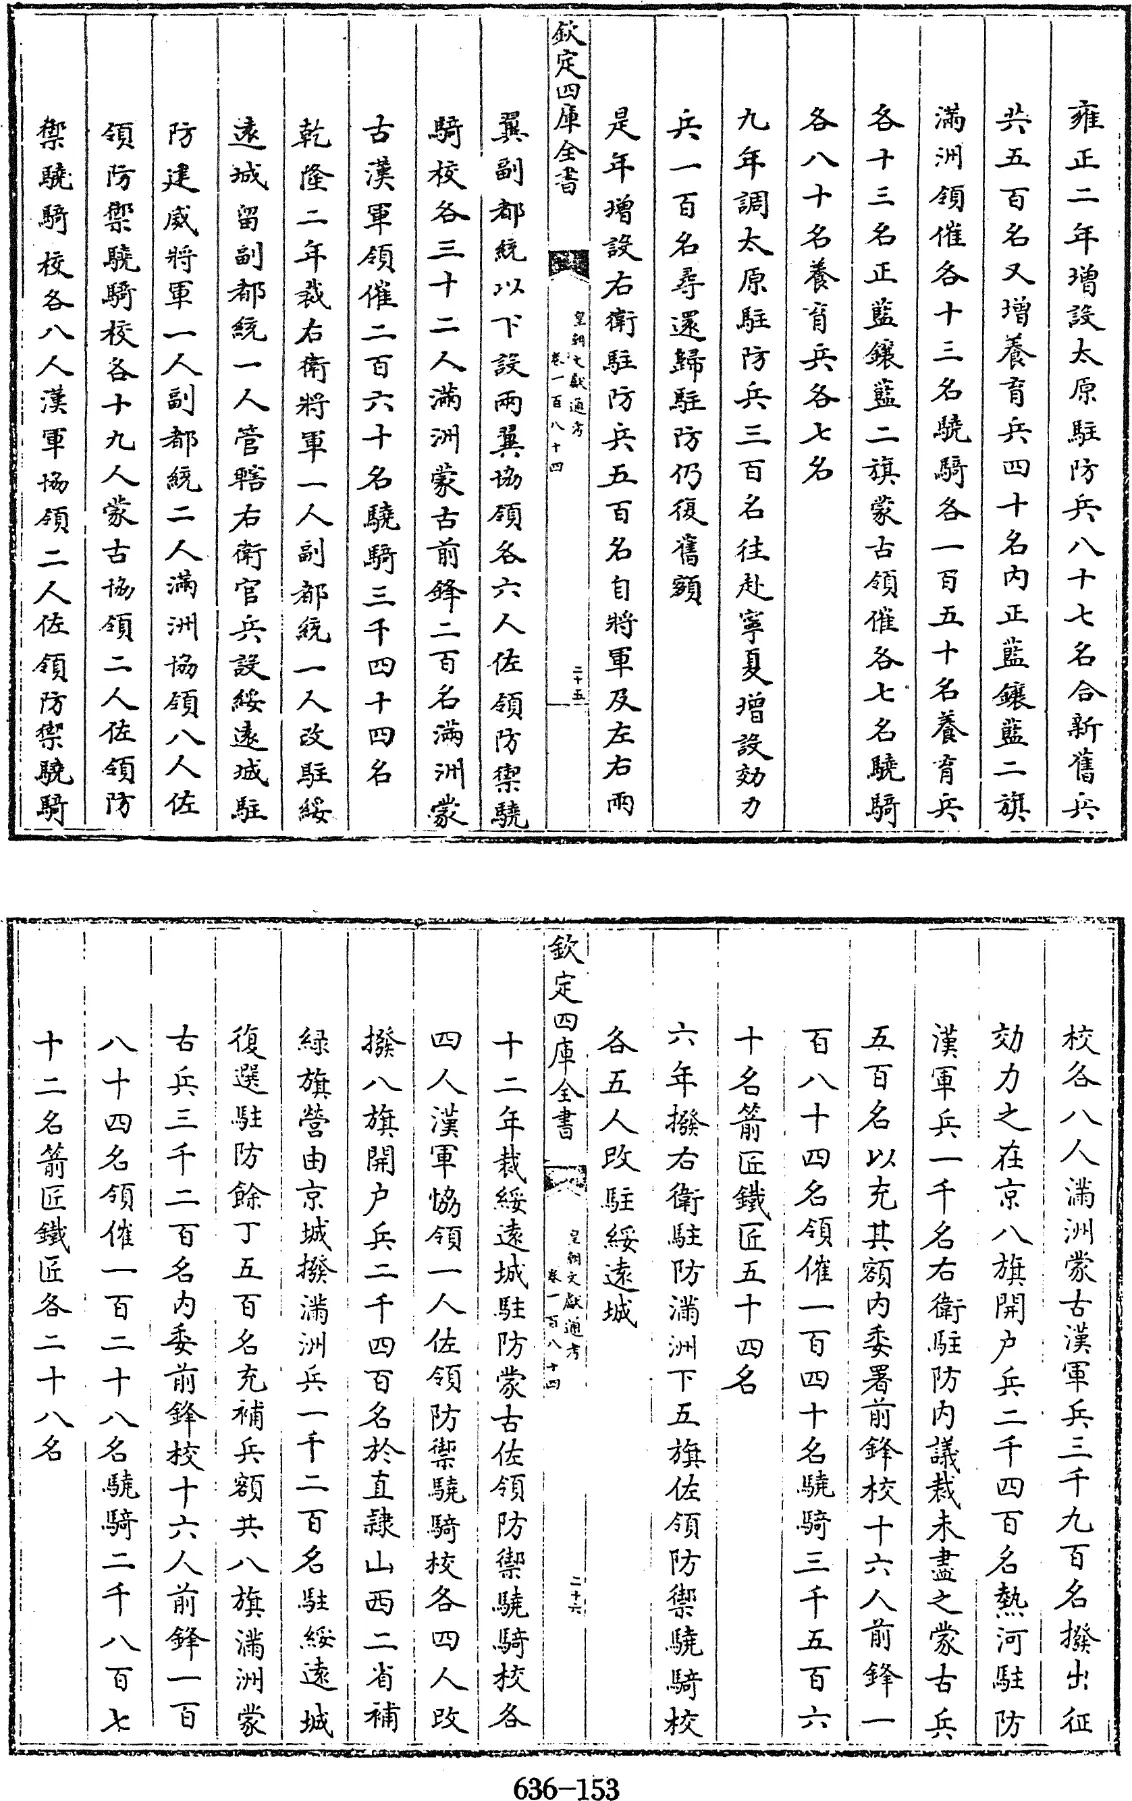 雍正二年增設太原駐防兵八十七名合新舊兵
共五百名又增養育兵四十名內正藍鑲藍二旗
滿洲領催各十三名驍騎各一百五十名養育兵
各十三名正藍鑲藍二旗蒙古領催各七名驍騎
各八十名養育兵各七名
九年調太原駐防兵三百名往赴寧夏增設効力
兵一百名尋還歸駐防仍復舊額
是年增設右衛駐防兵五百名自將軍及左右兩
欽定四庫全書
皇朝文獻通考
卷一百八十四
二十五
翼副都統以下設兩翼協領各六人佐領防禦驍
騎校各三十二人滿洲蒙古前鋒二百名滿洲蒙
古漢軍領催二百六十名驍騎三千四十四名
乾隆二年裁右衛將軍一人副都統一人改駐綏
遠城留副都統一人管轄右衛官兵設綏遠城駐
防建威將軍一人副都統二人滿洲協領八人佐
領防禦驍騎校各十九人蒙古協領二人佐領防
禦驍騎校各八人漢軍協領二人佐領防禦驍騎
校各八人滿洲蒙古漢軍兵三千九百名撥出征
効力之在京八旗開户兵二千四百名熱河駐防
漢軍兵一千名右衛駐防內議裁未盡之蒙古兵
五百名以充其額內委署前鋒校十六人前鋒一
百八十四名領催一百四十名驍騎三千五百六
十名箭匠鐵匠五十四名
六年撥右衛駐防滿洲下五旗佐領防禦驍騎校
各五人改駐綏遠城
欽定四庫全書
皇朝文獻通考
卷一百八十四
二十六
十二年裁綏遠城駐防蒙古佐領防禦驍騎校各
四人漢軍協領一人佐領防禦驍騎校各四人改
撥八旗開户兵二千四百名於直隸山西二省補
緑旗營由京城撥滿洲兵一千二百名駐綏遠城
復選駐防餘丁五百名充補兵額共八旗滿洲蒙
古兵三千二百名內委前鋒校十六人前鋒一百
八十四名領催一百二十八名驍騎二千八百七
十二名箭匠鐵匠各二十八名
636-153